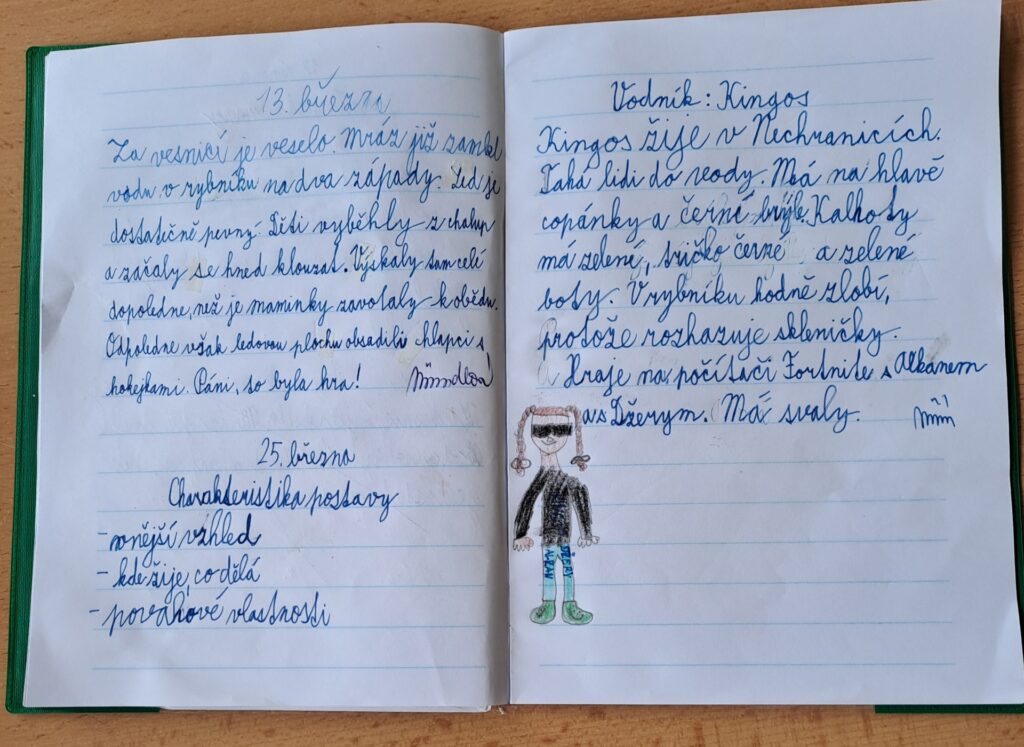 13. března
Za vesnicí je veselo. Mráz již zamkl
vodu v rybníku na dva západy. Led je
dostatečně pevný. Děti vyběhly z chalup
a začaly se hned klouzat. Výskaly tam celé
dopoledne, než je maminky zavolaly k obědu.
Odpoledne však ledovou plochu obsadili chlapci s
hokejkami. Páni, to byla hra!
25. března
Charakteristika postavy
- vnější vzhled
- kde žije, co dělá
- povahové vlastnosti
Vodník: Kingos
Kingos žije v Nechranicích.
Tahá lidi do vody. Má na hlavě
copánky a černé brýle. Kalhoty
má zelené, tričko černé a zelené
boty. V rybníku hodně zlobí,
protože rozhazuje skleničky.
Hraje na počítači Fortnite s Alkanem
a s Džerym. Má svaly.
ALKAN
DŽERY